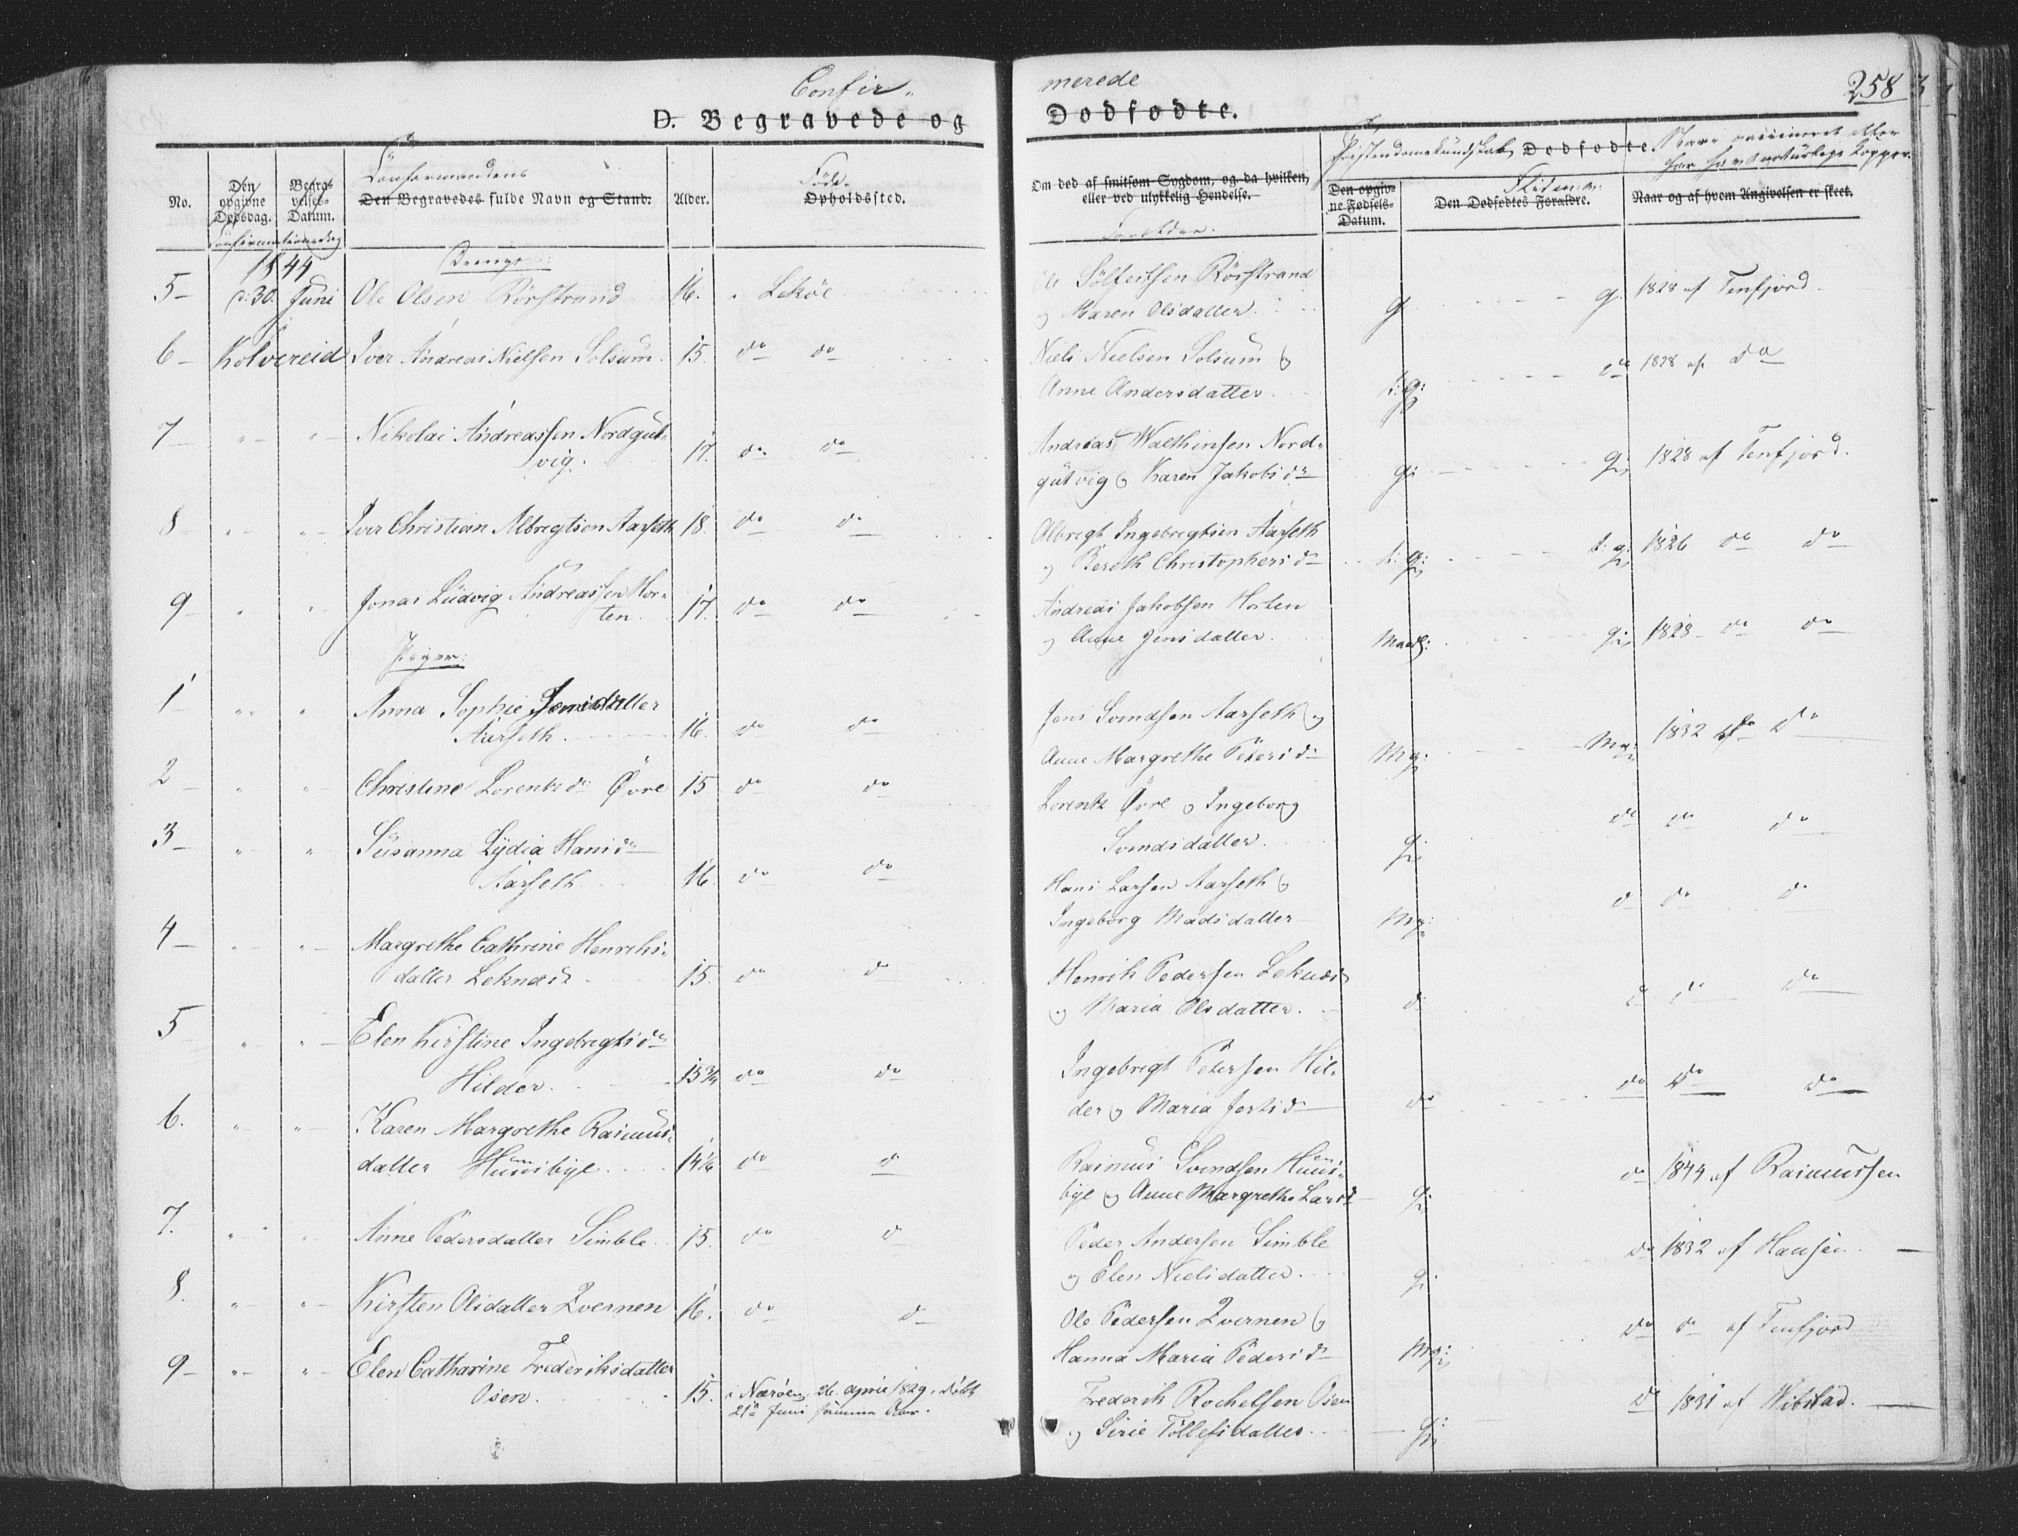 Confir-
D. Begravede og
No.
Den opgivne Dødsdag.
Begravelses-Datum.
Confirmationsdag
Confirmandens
Den Begravedes fulde Navn og Stand.
Alder.
Føde-
Opholdssted.
1844
Drenge:
5 d: 30 Juni Ole Olsen Rörstrand 16. Lekøe
6 Kolvereid Iver Andreas Nielsen Solsum 15. do do
7 Nikolai Andreassen Nordgut-
vig. 17. do do
8 Iver Christian Albregtsen Aarseth 18. do do
9 Jonas Ludvig Andreassen Hor-
ten 17. do do
Piger:
1 Anna Sophie Jensdatter
Aarseth. 16. do do
2 Christine Lorentsdr Øvre 15 do do
3 Susanna Lydia Hansdr
Aarseth 16. do do
4 Margrethe Cathrine Henriks-
datter Leknæs 15. do do
5 Elen Kirstine Ingebregtsdr
Hilder. 15 3/4 do do
6. Karen Margrethe Rasmus-
datter Huusbye 14 1/2 do do
7. Anne Pedersdatter Simble 15. do do
8. Kirsten Olsdatter Kvernen 16. do do
9 Elen Catharine Frederiksdatter
Osen. 15. i Nærøen, 26 april 1829, döbt
21de Juni samme Aar.
merede
Dødfødte.
258
Om død af smitsom Sygdom, og da hvilken, eller ved ulykkelig Hendelse.
Forældre.
Christendomskundskab
Dødfødte
Den opgivne Fødsels-Datum.
Fliden
Den Dødfødtes Forældre.
Naar vaccineret eller
har havt naturlige Kopper.
Naar og af hvem Angivelsen er skeet.
Ole Rörstrand
og Maren Olsdatter. g g. 1828 af Tenfjord
Niels Nielsen Solsum og
Anne Andersdatter. t: g: do 1828 af do
Andreas Nord-
gutvig og Karen Jakobsdr g: g: 1828 af Tenfjord.
Albregt Ingebregtsen Aarseth
og Bereth Christophersdr t: g: t: g: 1826 do do
Andreas Jakobsen Horten
og Anne Jensdatter. Maadl: g: 1828 do do
Jens Svendsen Aarseth og
Anne Margrethe Petersdr Mg: Mg: 1832 do
Lorentz Øvre og Ingeborg
Svendsdatter. g: do do do
Hans Larsen Aarseth og
Ingeborg Madsdatter Mg: d do do
Henrik Pedersen Leknæs
og Maria Olsdatter. d: d do do
Ingebregt Petersen Hil-
der og Maria do do do do
Rasmus Svendsen Huus-
bye og Anne Margrethe Larsd g: do 1844 af Rasmussen
Peder Andersen Simble
og Elen Nielsdatter. g: do 1832 af Hansen.
Ole Pedersen Kvernen og
Hanna Maria Pedersdr Mg: do do af Tenfjord
Frederik Osen
og Sirie Tollefsdatter. g: do 1831 af Wibstad.